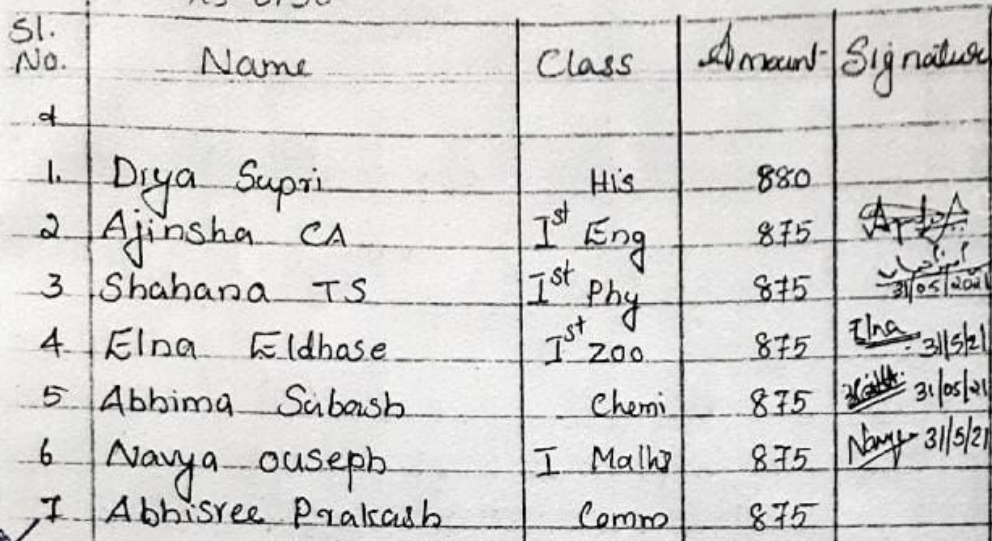 Sl. No. Name Class Amount Signature
1. Diya Supri His 880
2 Ajinsha CA Ist Eng 875
3 Shahana TS Ist Phy 875 31/05/2021
4 Elna Eldhase Ist Zoo 875 Elna 31/5/21
5 Abhima Subash Chemi 875 31/05/21
6 Navya ouseph I Maths 875 Navya 31/5/21
7 Abhisree Prakash Comm 875